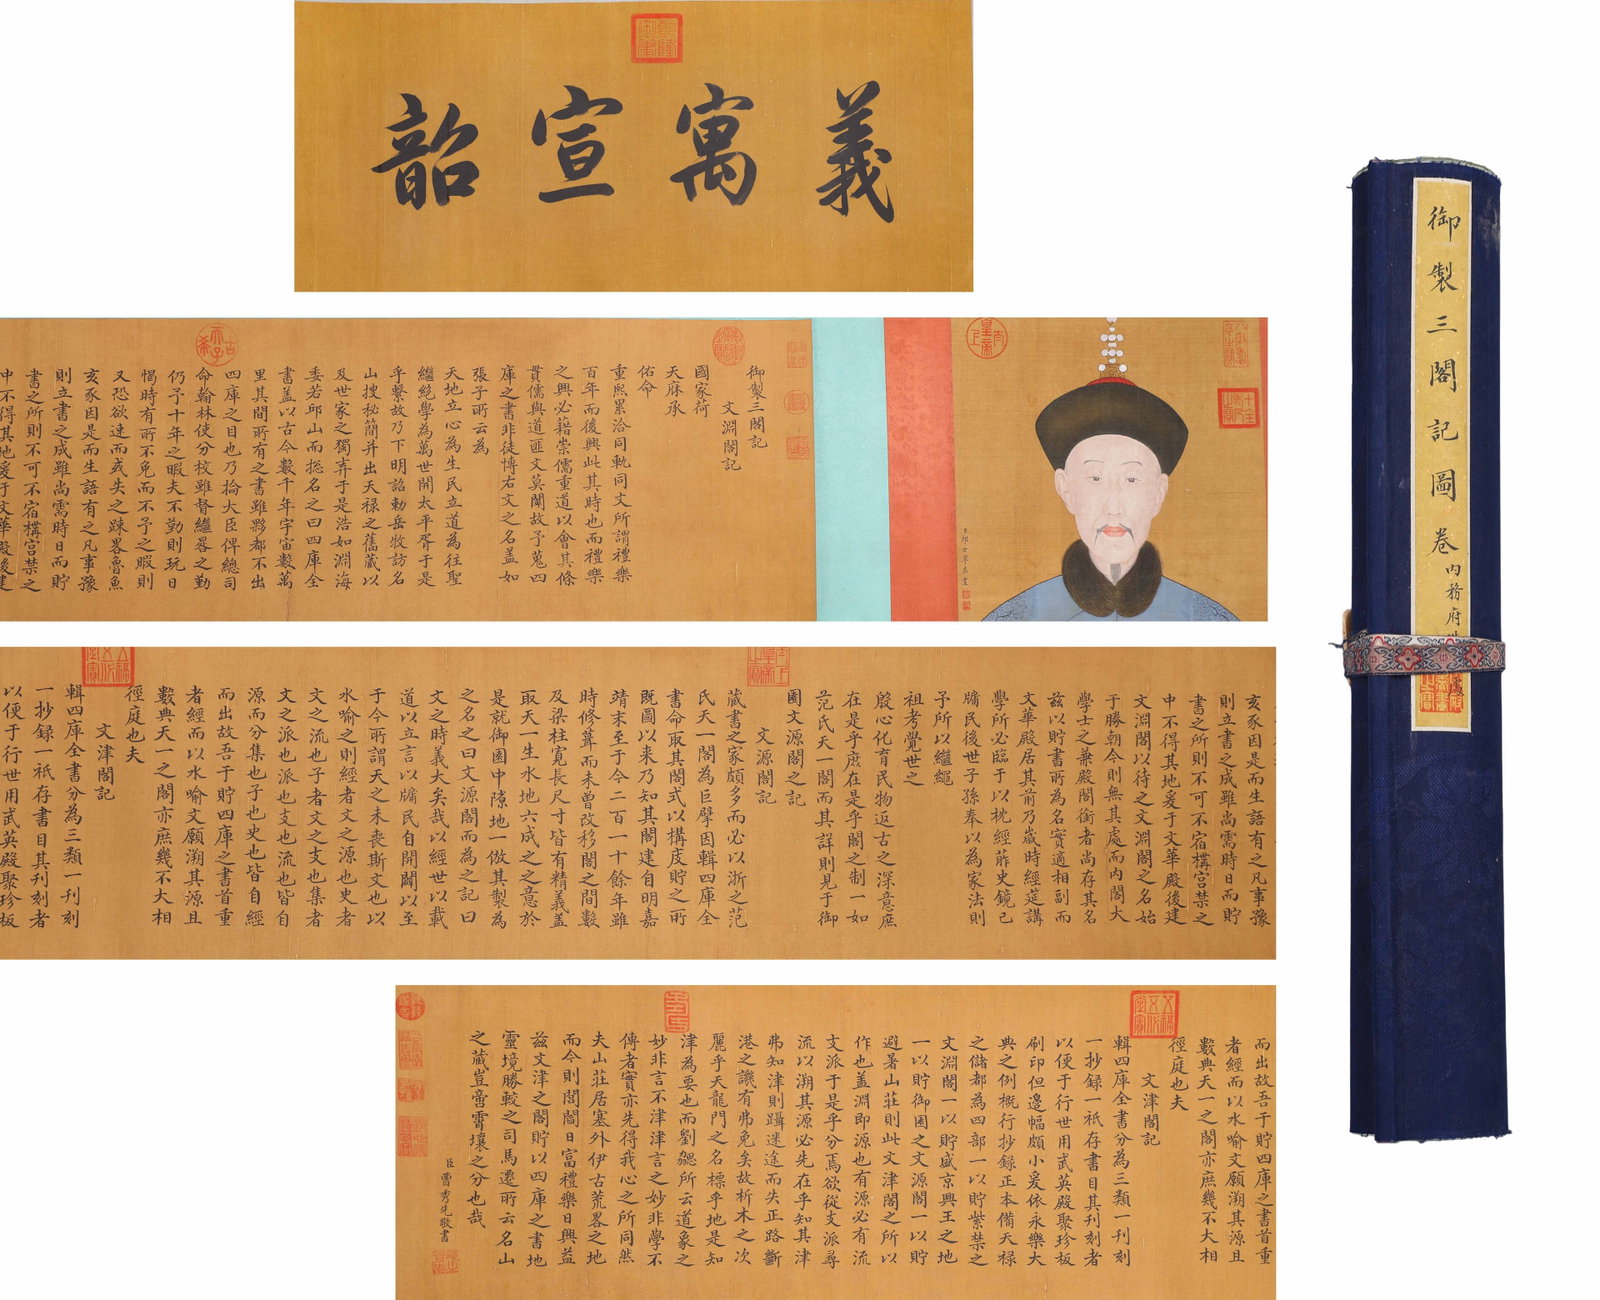 義寓宣韶
御製三閣記圖卷
內務府
御製三閣記
文淵閣記
國家荷
天庥承
佑命
重熙累洽同軌同文所謂禮樂
百年而後興此其時也而禮樂
之興必藉崇儒重道以會其條
貫儒與道匪文莫闡故予蒐四
庫之書非徒博右文之名蓋如
張子所云為
天地立心為生民立道為往聖
繼絶學為萬世開太平胥于是
乎繫故乃下明詔勅岳牧訪名
山搜秘簡并出天禄之舊藏以
及世家之獨弆于是浩如淵海
委若邱山而摠名之曰四庫全
書蓋以古今數千年宇宙數萬
里其間所有之書雖夥都不出
四庫之目也乃掄大臣俾總司
命翰林使分校雖督繼晷之勤
仍予十年之暇夫不勤則玩日
愒時有所不免而不予之暇則
又恐欲速而或失之踈畧魯魚
亥豕因是而生語有之凡事豫
則立書之成雖尚需時日而貯
書之所則不可不宿構宮禁之
中不得其地爰于文華殿後建
亥豕因是而生語有之凡事豫
則立書之成雖尚需時日而貯
書之所則不可不宿構宮禁之
中不得其地爰于文華殿後建
文淵閣以待之文淵閣之名始
于勝朝今則無其處而內閣大
學士之兼殿閣銜者尚存其名
茲以貯書所為名實適相副而
文華殿居其前乃歲時經筵講
學所必臨于以枕經葄史鏡己
牖民後世子孫奉以為家法則
予所以繼繩
祖考覺世之
殷心化育民物返古之深意庶
在是乎庶在是乎閣之制一如
范氏天一閣而其詳則見于御
園文源閣之記
文源閣記
藏書之家頗多而必以浙之范
氏天一閣為巨擘因輯四庫全
書命取其閣式以構庋貯之所
既圖以來乃知其閣建自明嘉
靖末至于今二百一十餘年雖
時修葺而未曾改移閣之間數
及梁柱寬長尺寸皆有精義蓋
取天一生水地六成之之意於
是就御園中隙地一倣其製為
之名之曰文源閣而為之記曰
文之時義大矣哉以經世以載
道以立言以牖民自開闢以至
于今所謂天之未喪斯文也以
水喻之則經者文之源也史者
文之流也子者文之支也集者
文之派也派也支也流也皆自
源而分集也子也史也皆自經
而出故吾于貯四庫之書首重
者經而以水喻文願溯其源且
數典天一之閣亦庶幾不大相
徑庭也夫
文津閣記
輯四庫全書分為三類一刊刻
一抄録一祇存書目其刊刻者
以便于行世用武英殿聚珍板
而出故吾于貯四庫之書首重
者經而以水喻文願溯其源且
數典天一之閣亦庶幾不大相
徑庭也夫
文津閣記
輯四庫全書分為三類一刊刻
一抄録一祇存書目其刊刻者
以便于行世用武英殿聚珍板
刷印但邊幅頗小爰依永樂大
典之例概行抄録正本備天禄
之儲都為四部一以貯紫禁之
文淵閣一以貯盛京興王之地
一以貯御園之文源閣一以貯
避暑山莊則此文津閣之所以
作也蓋淵即源也有源必有流
文派于是乎分焉欲從支派尋
流以溯其源必先在乎知其津
弗知津則躡迷途而失正路斷
港之譏有弗免矣故析木之次
麗乎天龍門之名標乎地是知
津為要也而劉勰所云道象之
妙非言不津津言之妙非學不
傳者實亦先得我心之所同然
夫山莊居塞外伊古荒畧之地
而今則閭閻日富禮樂日興益
茲文津之閣貯以四庫之書地
靈境勝較之司馬遷所云名山
之藏豈啻霄壤之分也哉
臣曹秀先敬書